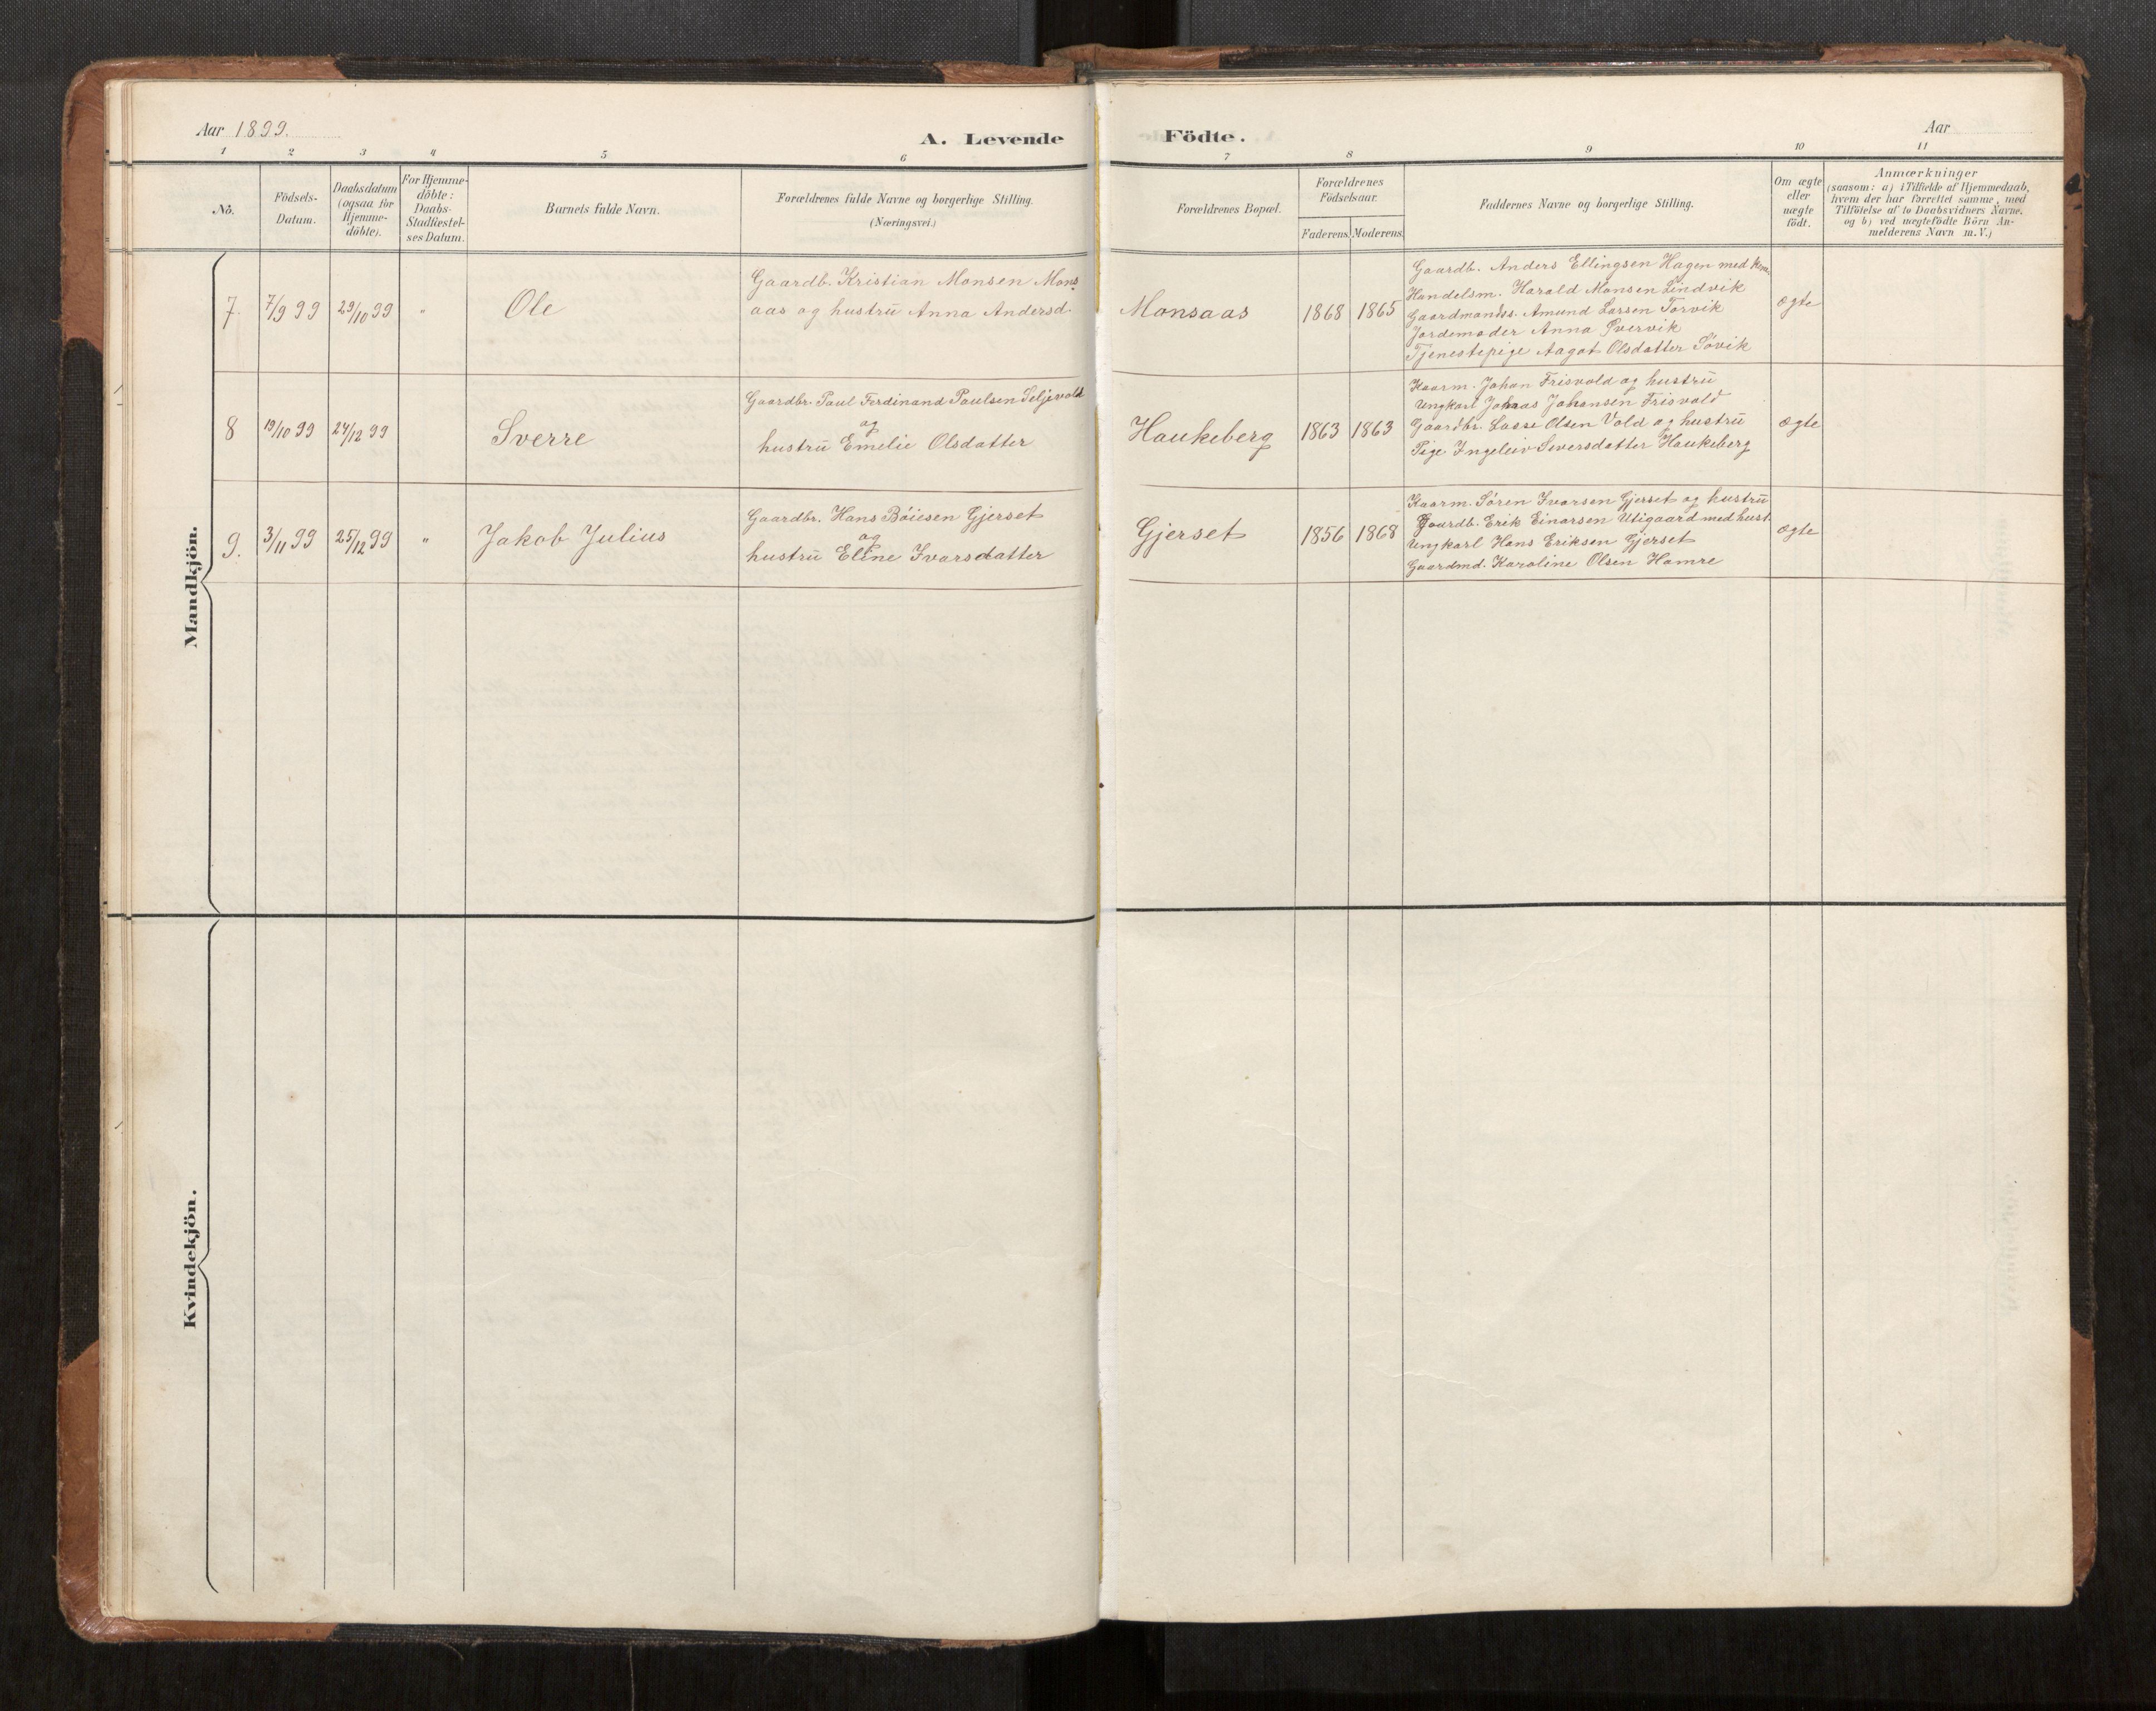 Aar 1899.
A. Levende Födte.
Aar
1 2 3 4 5 6 7 8 9 10 11
No.
Födsels-
Datum.
Daabsdatum
(ogsaa for
Hjemme-
döbte).
For Hjemme-
döbte:
Daabs-
Stadfæstel-
ses Datum.
Barnets fulde Navn.
Forældrenes fulde Navne og borgerlige Stilling.
(Næringsvei.)
Forældrenes Bopæl.
Forældrenes
Födselsaar.
Faderens. Moderens.
Faddernes Navne og borgerlige Stilling.
Om ægte
eller
uægte
födt.
Anmærkninger
(saasom: a) i Tilfælde af Hjemmedaab,
hvem der har forrettet samme, med
Tilföielse af to Daabsvidners Navne,
og b) ved uægtefödte Börn An-
melderens Navn m. V.)
Mandkjön.
7. 7/9 99 29/10 99 " Ole
Gaardb. Kristian Monsen Mons
aas og hustrū Anna Andersd.
Monsaas 1868 1865
Gaardb. Anders Ellingsen Hagen med kone
Handelsm. Harald Monsen Lindvik
Gaardmandss. Amund Lassen Torvik
Jordemoder Anna Øvervik
Tjenestepige Aagot Olsdatter Søvik
ægte
8 19/10 99 24/12 99 Sverre
Gaardbr. Paul Ferdinand Paulsen Seljevold
og
hustrū Emelie Olsdatter
Haukeberg 1863 1863
Kaarm. Johan Frisvold og hustrū
Ungkarl Johnas Johansen Frisvold
Gaardbr. Lasse Olsen Vold og hustrū
Pige Ingeleiv Seversdatter Haukeberg
ægte
9. 3/11 99 25/12 99 " Jakob Julius
Gaardbr. Hans Böiesen Gjerset
og
hustrū Eline Ivarsdatter
Gjerset 1856 1868
Kaarm. Sören Ivarsen Gjerset og hustrū
Gaardb. Erik Einarsen Utigaard med hust.
Ungkarl Hans Eriksen Gjerset
Gaardmd. Karoline Olsen Hamre
ægte
Kvindekjön.